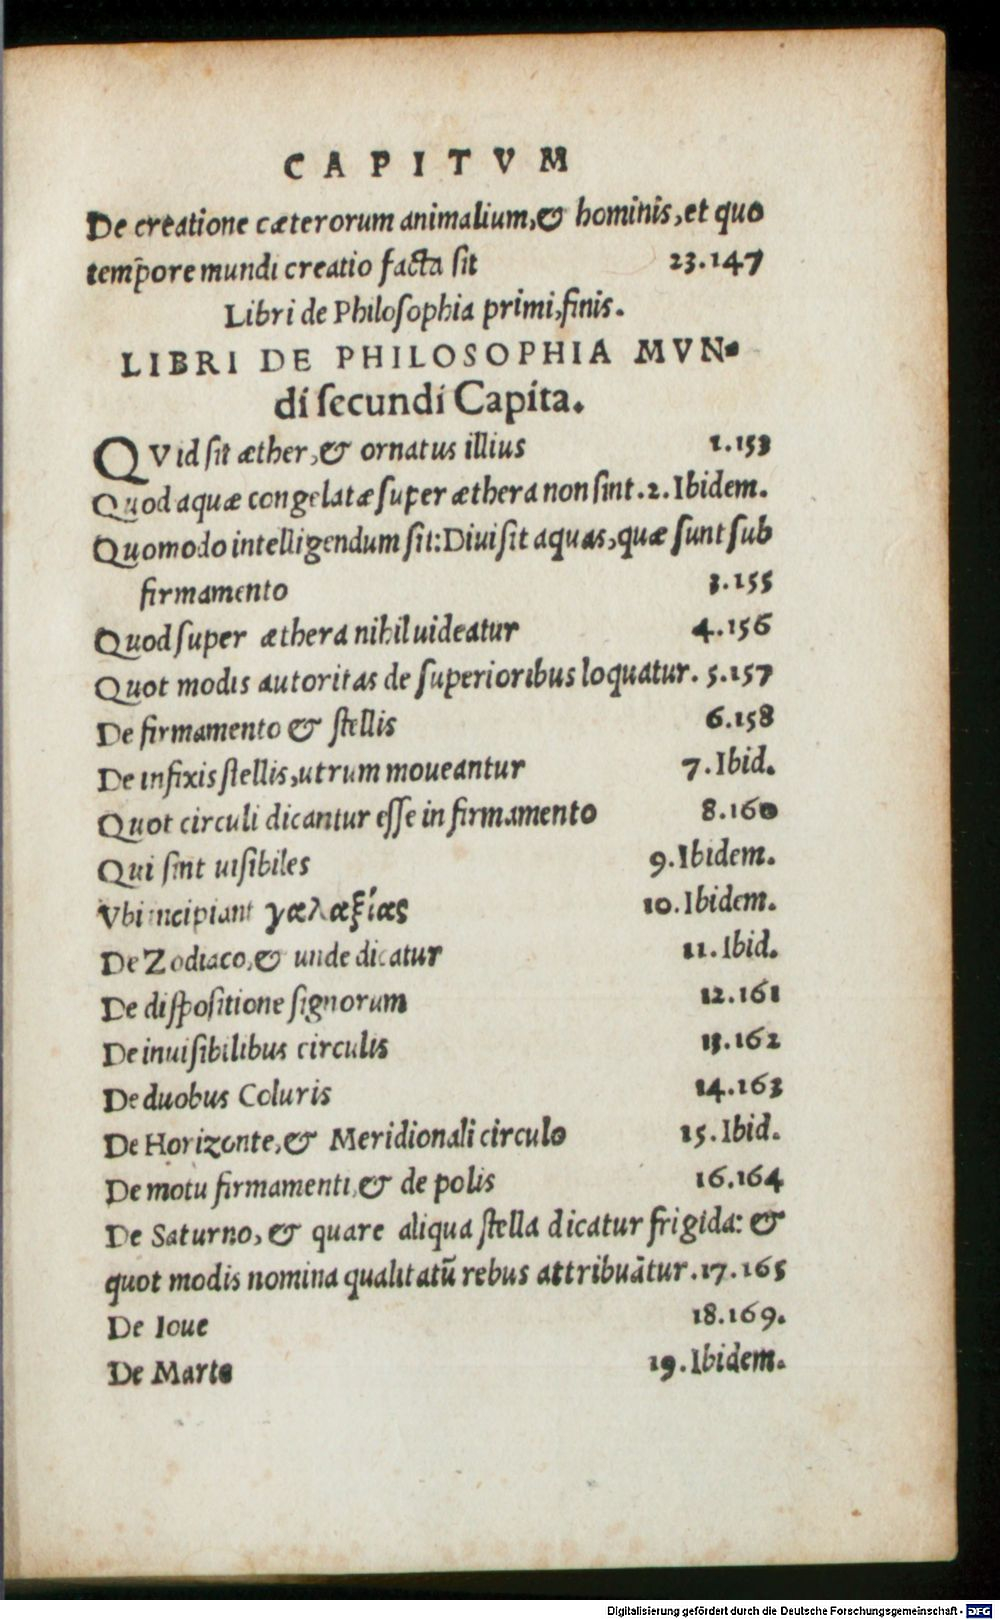 CAPITVM
De creatione cæterorum animalium, & hominis, et quo
temp̄ore mundi creatio facta sit 23.147
Libri de Philosophia primi, finis.
LIBRI DE PHILOSOPHIA MVN-
di secundi Capita.
QVid sit æther, & ornatus illius 1.153
Quod aquæ congelatæ super æthera non sint. 2. Ibidem.
Quomodo intelligendum sit: Diuisit aquas, quæ sunt sub
firmamento 3.155
Quod super æthera nihil uideatur 4.156
Quot modis autoritas de superioribus loquatur. 5.157
De firmamento & stellis 6.158
De infixis stellis, utrum moueantur 7. Ibid.
Quot circuli dicantur esse in firmamento 8.160
Qui sint uisibiles 9. Ibidem.
Vbi incipiant γαλαξίας 10. Ibidem.
De Zodiaco, & unde dicatur 11. Ibid.
De dispositione signorum 12.161
De inuisibilibus circulis 13.162
De duobus Coluris 14.163
De Horizonte, & Meridionali circulo 15. Ibid.
De motu firmamenti, & de polis 16.164
De Saturno, & quare aliqua stella dicatur frigida: &
quot modis nomina qualitatū rebus attribuātur. 17.165
De Ioue 18.169.
De Marte 19. Ibidem.
Digitalisierung gefördert durch die Deutsche Forschungsgemeinschaft - DFG